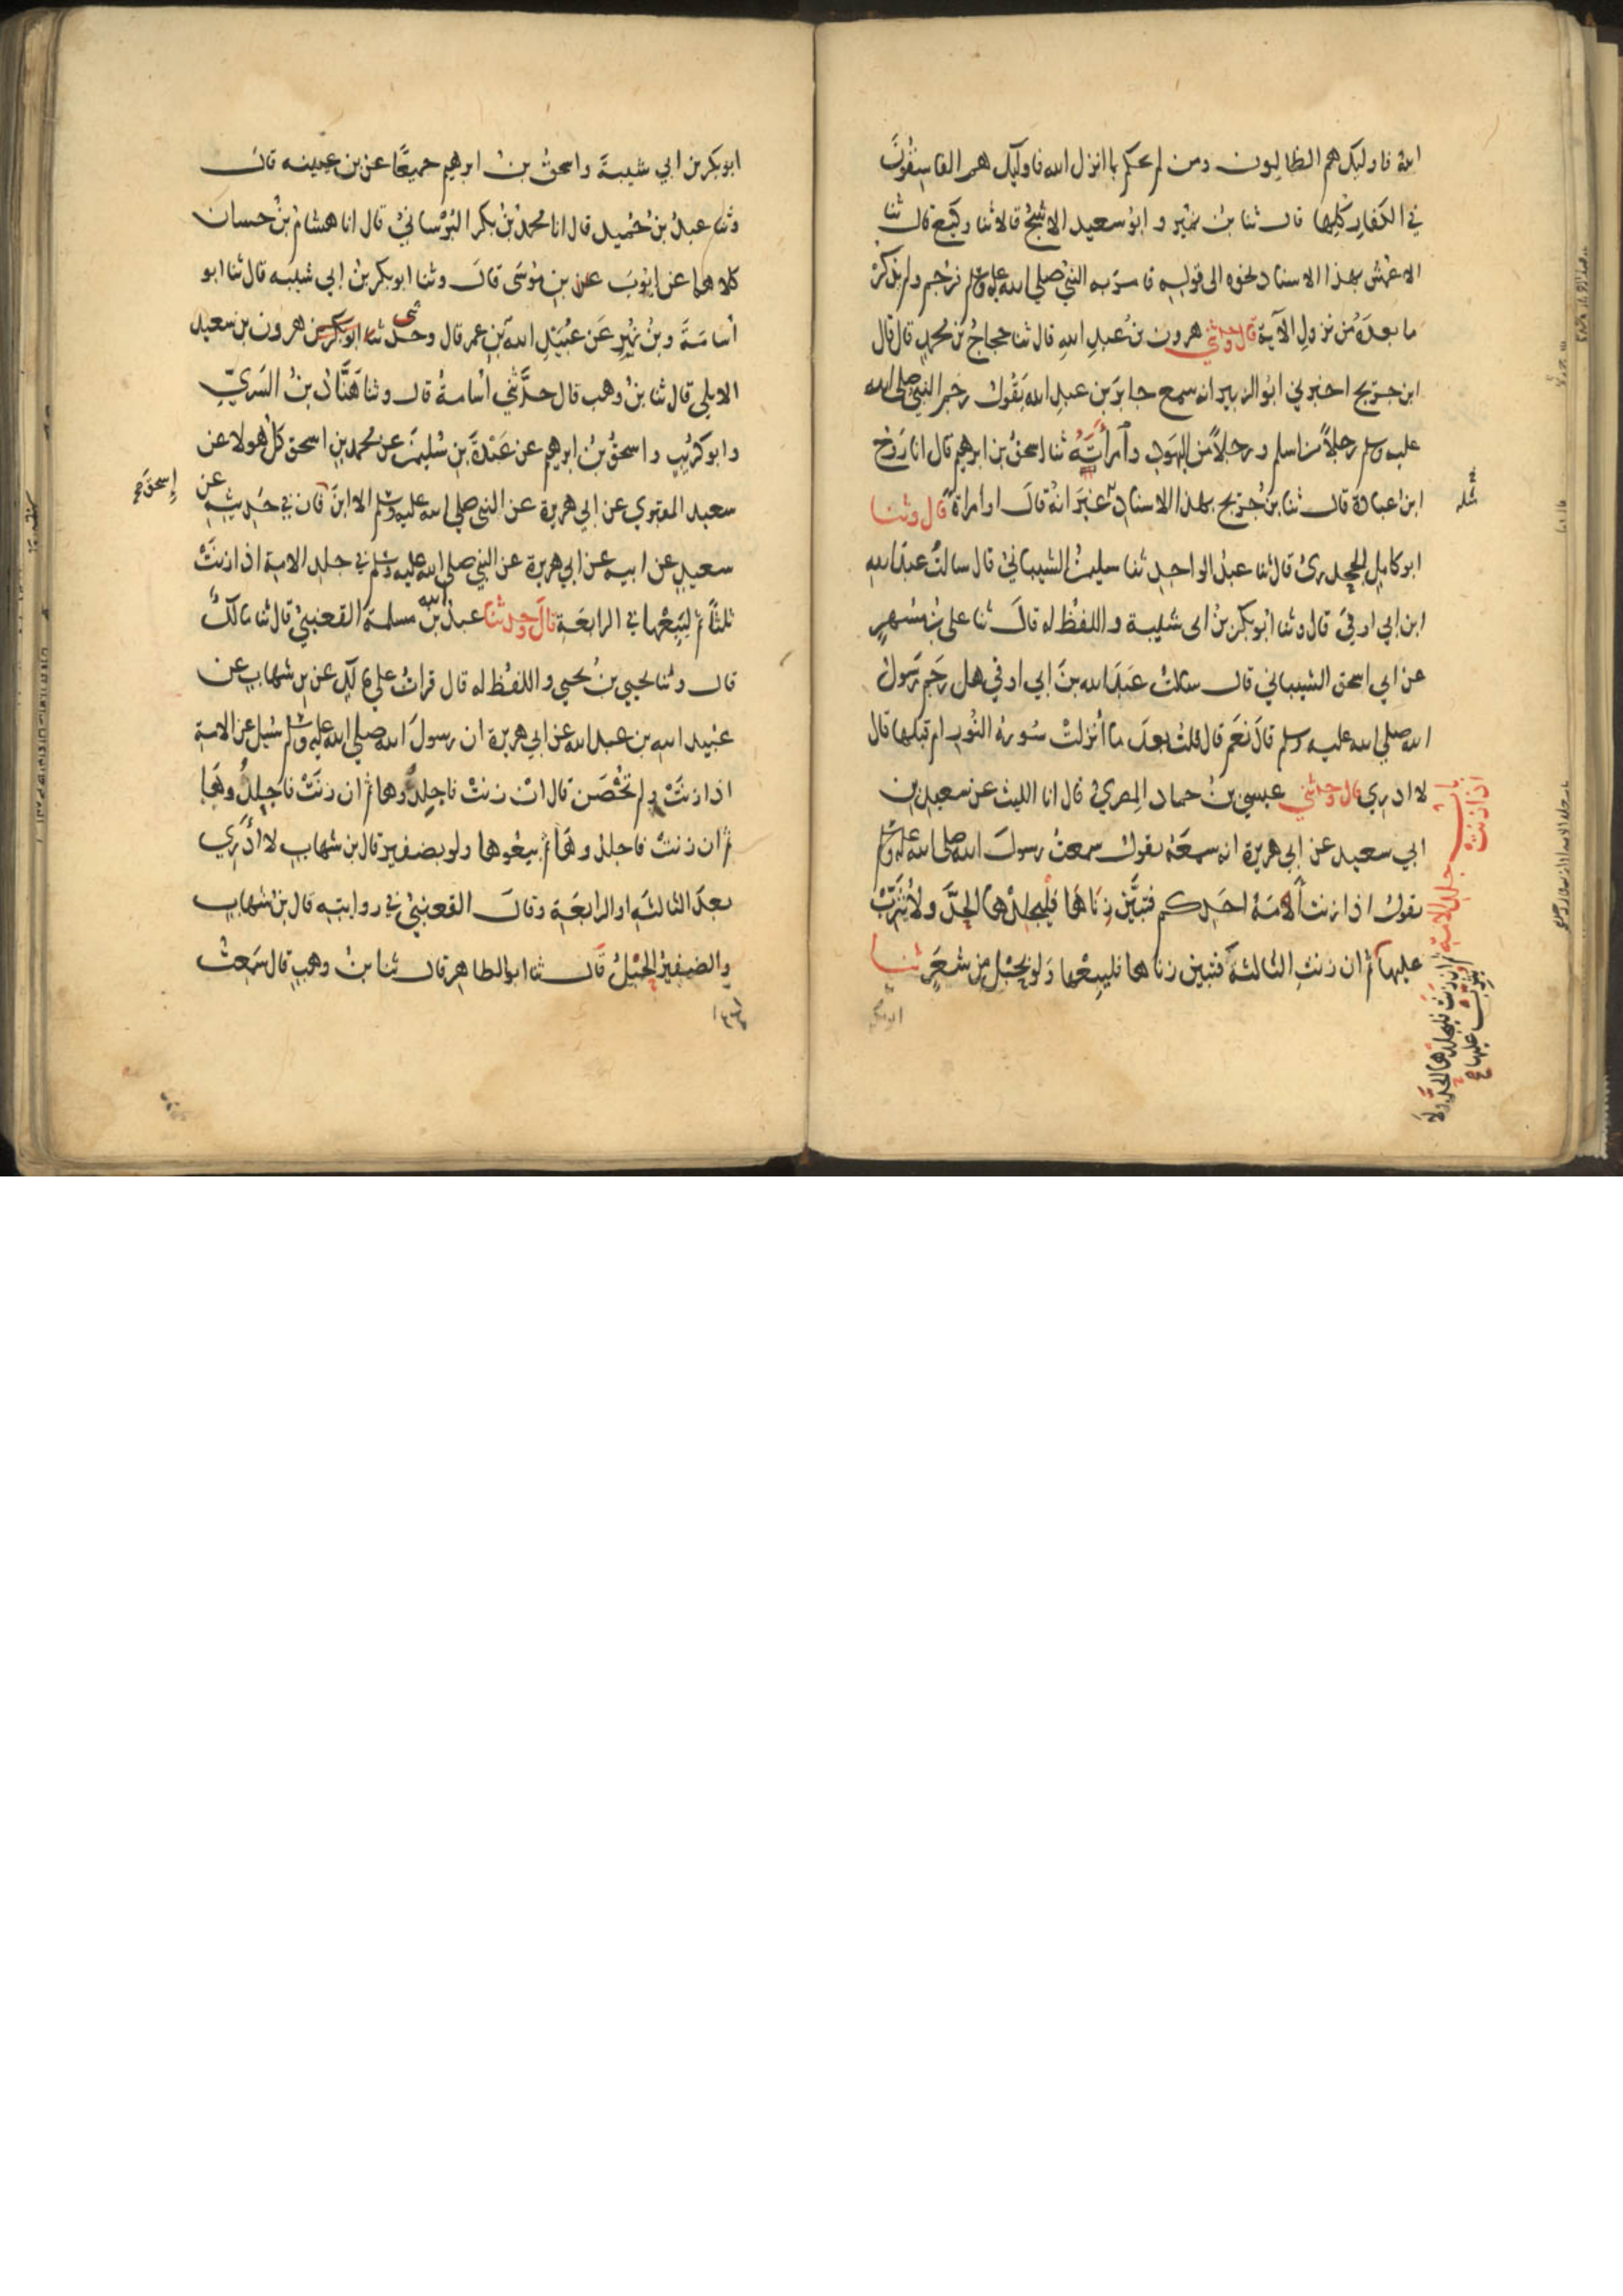 الله فاوليك هم الظالمون ومن لم يحكم بما انزل الله فاوليك هم الفاسقون
في الكفار كلها قال ثنا بن نمير و ابو سعيد الاشج قالا ثنا وكيع قال ثنا
الاعمش بهذا الاسناد نحوه الى قوله فامر به النبي صلى الله عليه وسلم فرجم ولم يذكر
ما بعده من نزول الآية قال وحدثني هرون بن عبد الله قال ثنا حجاج بن محمد قال قال
ابن جريج اخبرني ابو الزبير انه سمع جابر بن عبد الله يقول رجم النبي صلى الله
عليه وسلم رجلاً من اسلم ورجلاً من اليهود وامرأته ثنا اسحق بن ابرهيم قال انا روح
ابن عبادة قال ثنا بن جريج بهذا الاسناد غير انه قال وامراة قال وثنا
مثله
ابو كامل الجحدري قال ثنا عبد الواحد ثنا سليمن الشيباني قال سالت عبد الله
ابن ابي اوفى قال وثنا ابو بكر بن ابي شيبة واللفظ له قال ثنا علي بن مسهر
عن ابي اسحق الشيباني قال سالت عبد الله بن ابي اوفى هل رجم رسول
الله صلى الله عليه وسلم قال نعم قال قلت بعد ما أنزلت سورة النور ام قبلها قال
لا ادري قال وحدثني عيسى بن حماد المصري قال انا الليث عن سعيد بن
باب جلد الامة اذا زنت
ابي سعيد عن ابي هريرة انه سمعه يقول سمعت رسول الله صلى الله عليه وسلم
يقول اذا زنت أمة احدكم فتبين زناها فليجلدها الحد ولا يثرب
عليها ثم ان زنت الثالثة فتبين زناها فليبعها ولو بحبل من شعر ثنا
ثم ان زنت فليجلدها الحد ولا
يثرب عليها صح
ابو بكر
ابو بكر بن ابي شيبة واسحق بن ابرهيم جميعًا عن بن عيينه قال
وثنا عبد بن حميد قال انا محمد بن بكر البرساني قال انا هشام بن حسان
كلاهما عن ايوب عن بن موسى قال وثنا ابو بكر بن ابي شيبه قال ثنا ابو
أسامة وبن نمير عن عبيد الله بن عمر قال وحدثنى ابو بكر بن هرون بن سعيد
الايلي قال ثنا بن وهب قال حدثني أسامة قال وثنا هناد بن السري
وابو كريب واسحق بن ابرهيم عن عبدة بن سليمن عن محمد بن اسحق كل هولا عن
سعيد المقبري عن ابي هريرة عن النبي صلى الله عليه وسلم الا ابن قال في حديثه عن
إسحق صح
سعيد عن ابيه عن ابي هريرة عن النبي صلى الله عليه وسلم في جلد الامة اذا زنت
ثلثاً ثم ليبعها في الرابعة قال وحدثنا عبد الله بن مسلمة القعنبي قال ثنا مالك
قال وثنا يحيى بن يحيى واللفظ له قال قرات على مالك عن بن شهاب عن
عبيد الله بن عبد الله عن ابي هريرة ان رسول الله صلى الله عليه وسلم سيل عن الامة
اذا زنت ولم تحصن قال ان زنت فاجلدوها ثم ان زنت فاجلدوها
ثم ان زنت فاجلدوها ثم بيعوها ولو بضفير قال بن شهاب لا أدري
بعد الثالثه او الرابعة وقال القعنبي في روايته قال بن شهاب
والضفير الحبل قال ثنا ابو الطاهر قال ثنا بن وهب قال سمعت